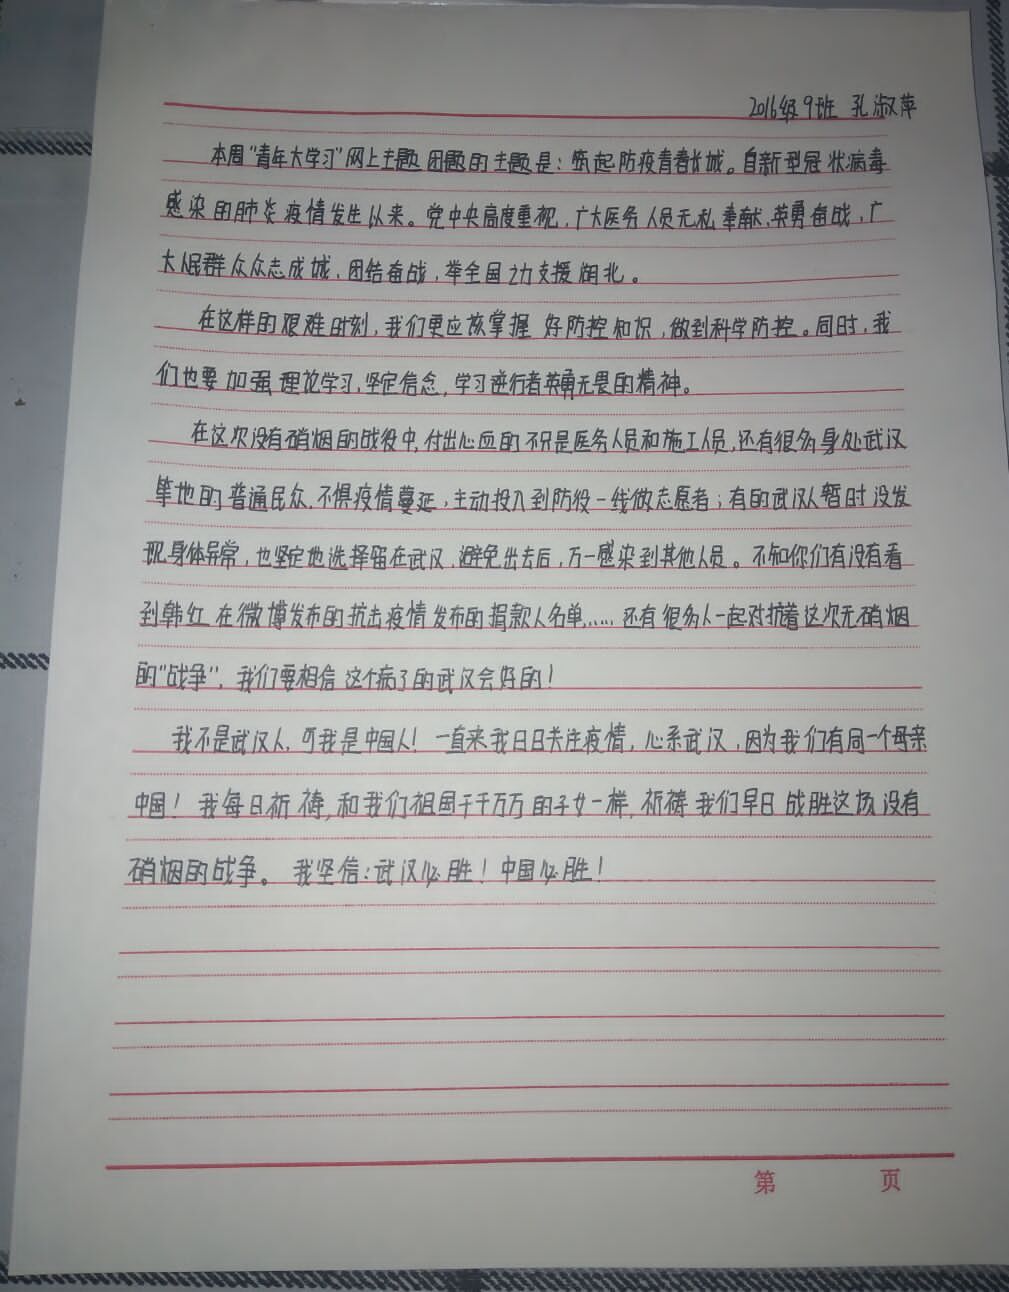 2016级9班 孔淑萍
本周“青年大学习”网上主题团题的主题是：筑起防疫青春长城。自新型冠状病毒
感染的肺炎疫情发生以来。党中央高度重视，广大医务人员无私奉献、英勇奋战，广
大人民群众众志成城、团结奋战，举全国之力支援湖北。
在这样的艰难时刻，我们更应该掌握好防控知识，做到科学防控。同时，我
们也要加强理论学习、坚定信念，学习逆行者英勇无畏的精神。
在这次没有硝烟的战役中，付出心血的不只是医务人员和施工人员，还有很多身处武汉
等地的普通民众，不惧疫情蔓延，主动投入到防役一线做志愿者；有的武汉人暂时没发
现身体异常，也坚定地选择留在武汉，避免出去后，万一感染到其他人员。不知你们有没有看
到韩红在微博发布的抗击疫情发布的捐款人名单……还有很多人一起对抗着这次无硝烟
的“战争”，我们要相信这个病了的武汉会好的！
我不是武汉人，可我是中国人！一直来我日日关注疫情，心系武汉，因为我们有同一个母亲
中国！我每日祈祷，和我们祖国千千万万的子女一样，祈祷我们早日战胜这场没有
硝烟的战争。我坚信：武汉必胜！中国必胜！
第 页